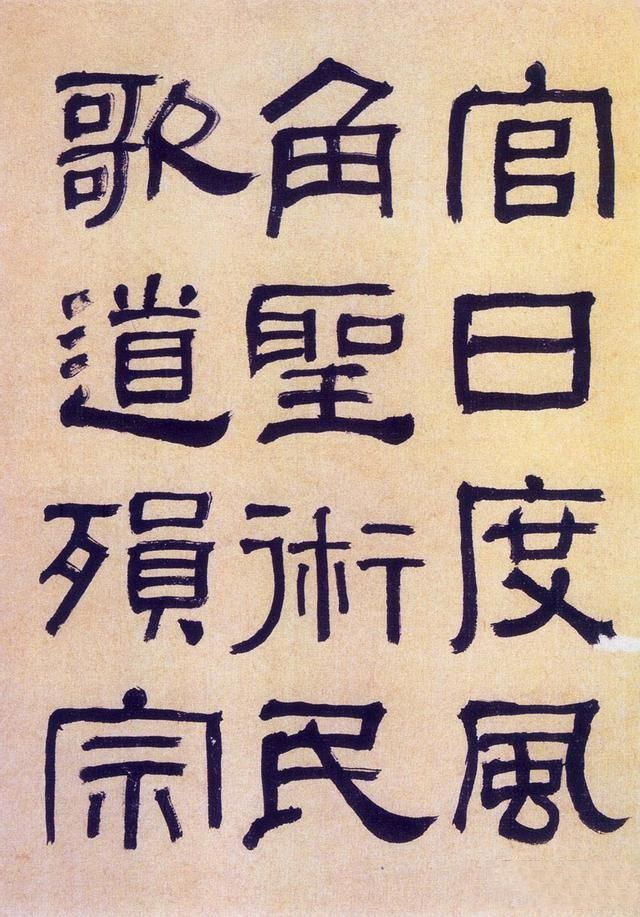 官日度風
角聖術民
歌道殞宗